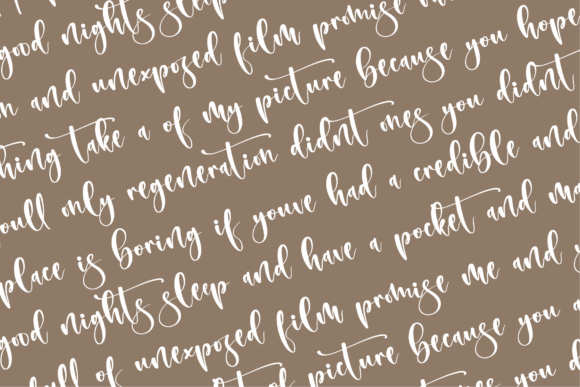 good nights sleep
and unexposed film promise me
take a of my picture because you hope
youll only regeneration didnt ones you didnt
place is boring if youve had a credible and
good nights sleep and have a pocket and
full of unexposed film promise me and
of picture because you